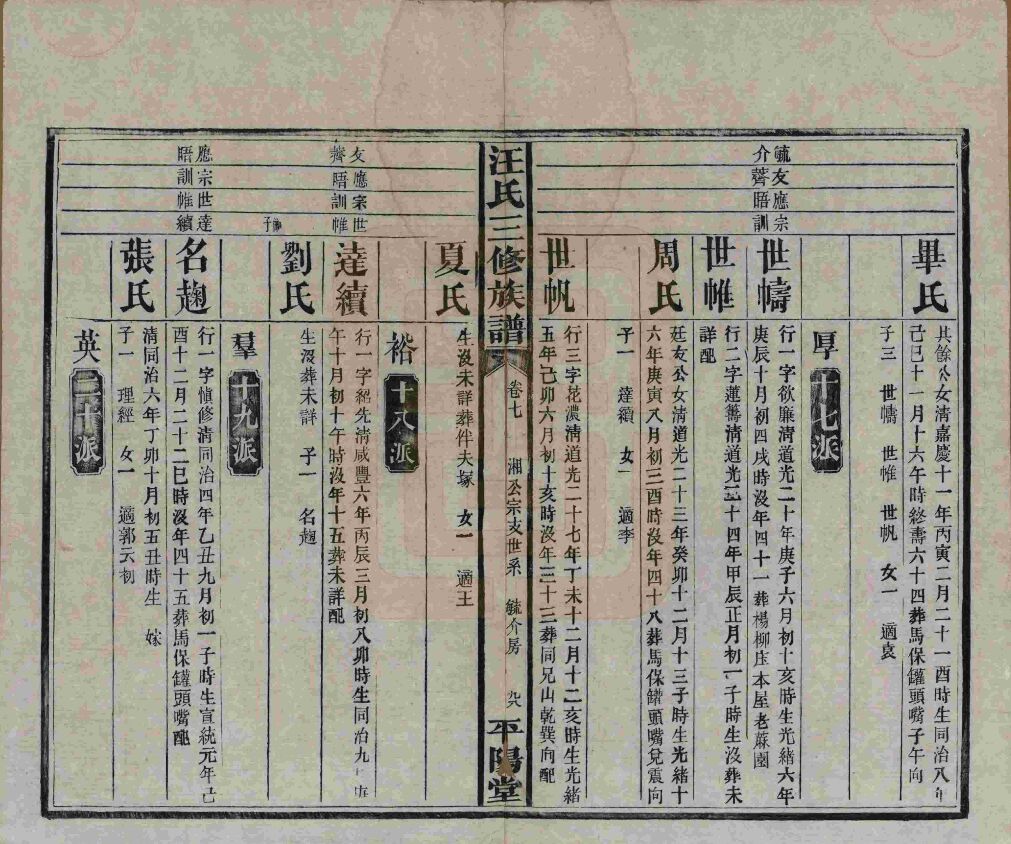 畢氏
其餘公女清嘉慶十一年丙寅二月二十一酉時生同治八年
己巳十一月十六午時終壽六十四葬馬保罐頭嘴子午向
子三 世幬 世帷 世帆 女一 適袁
厚 十七派
毓友應宗
介薺晤訓
世幬
行一字欲廉清道光二十年庚子六月初十亥時生光緒六年
庚辰十月初四戌時沒年四十一葬楊柳庄本屋老蔴園
世帷
行二字蓮籌清道光二十四年甲辰正月初一子時生沒葬未
詳配
周氏
廷友公女清道光二十三年癸卯十二月十三子時生光緒十
六年庚寅八月初三酉時沒年四十八葬馬保罐頭嘴兌震向
子一 達續 女一 適李
世帆
行三字花濃清道光二十七年丁未十二月十二亥時生光緒
五年己卯六月初十亥時沒年三十三葬同兄山乾巽向配
汪氏三修族譜 卷七 湘公宗支世系 毓介房 九八 平陽堂
夏氏
生沒未詳葬伴夫塚 女一 適王
裕 十八派
友應宗世
薺晤訓帷
達續
行一字紹先清咸豐六年丙辰三月初八卯時生同治九年庚
午十月初十午時沒年十五葬未詳配
劉氏
生沒葬未詳 子一 名趨
羣 十九派
應宗世達
晤訓帷續
名趨
行一字愼修清同治四年乙丑九月初一子時生宣統元年己
酉十二月二十二巳時沒年四十五葬馬保罐頭嘴配
張氏
清同治六年丁卯十月初五丑時生 嫁
子一 理經 女一 適郭云初
英 二十派